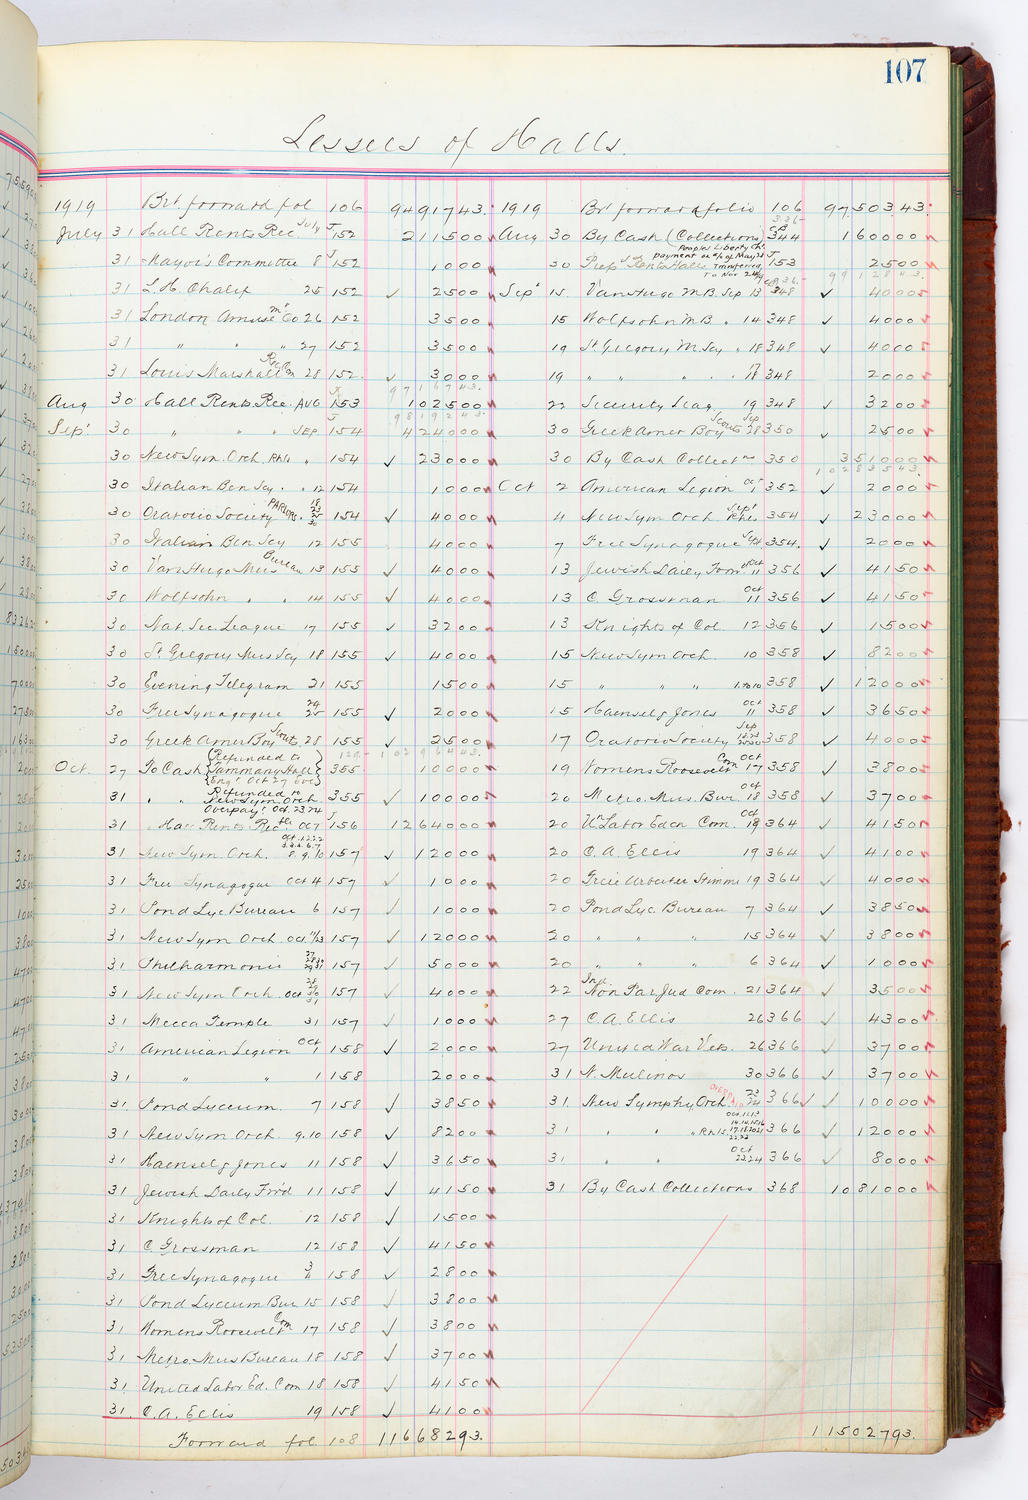 107
Lessees of Halls.
1919 Brt. forward fol 106 9491743.
July 31 Hall Rents Rec. July J 152 211500
31 Mayor's Committee 8 J 152 1000
31 L.H. Chalif 25 152 ✓ 2500
31 London Amuse mt Co 26 152 3500
31 " " " 27 152 3500
31 Louis Marshall 28 152 ✓ 3000
9716743.
Aug 30 Hall Rents Rec. Aug J 153 102500
9819243.
Sept 30 " " " Sep J 154 424000
30 New Sym. Orch. Rhls " 154 ✓ 23000
30 Italian Ben Scy. " 12 154 1000
30 Oratorio Society Parlors. 18 23 25 30 154 ✓ 4000
30 Italian Ben Scy 12 155 4000
30 Van Hugo Mus Bureau 13 155 ✓ 4000
30 Wolfsohn " " 14 155 ✓ 4000
30 Nat. Sec. League 17 155 ✓ 3200
30 St Gregory Mus Scy 18 155 ✓ 4000
30 Evening Telegram 21 155 1500
30 Free Synagogue 155 ✓ 2000
30 Greek Amer Boy Scouts 28 155 ✓ 2500
10296443.
Oct. 27 To Cash (Refunded to Tammany Hall Engt Oct 27 Eve) 355 10000
31 " " Refunded to New Sym. Orch Overpayt Oct. 23.24 355 ✓ 10000
31 Hall Rents Rec. Oct J 156 1264000
31 New Sym. Orch. 8. 9. 10 157 ✓ 12000
31 Free Synagogue Oct 4 157 ✓ 1000
31 Pond Lyc. Bureau 6 157 ✓ 1000
31 New Sym Orch. Oct. 11/23 157 ✓ 12000
31 Philharmonic 157 ✓ 5000
31 New Sym Orch. Oct 157 ✓ 4000
31 Mecca Temple 31 157 ✓ 1000
31 American Legion Oct 1 158 ✓ 2000
31 " " 1 158 2000
31. Pond Lyceum. 7 158 ✓ 3850
31 New Sym Orch. 9.10 158 ✓ 8200
31 Haensel & Jones 11 158 ✓ 3650
31 Jewish Daily Fr'd 11 158 ✓ 4150
31 Knights of Col. 12 158 ✓ 1500
31 C Grossman 12 158 ✓ 4150
31 Free Synagogue 158 ✓ 2800
31 Pond Lyceum Bur 15 158 ✓ 3800
31 Womens Roosevelt Com 17 158 ✓ 3800
31 Metro. Mus Bureau 18 158 ✓ 3700
31 United Labor Ed. Com 18 158 ✓ 4150
31. C.A. Ellis 19 158 ✓ 4100
Forward fol. 108 11668293.
1919 Brt forward folio 106 9750343.
Aug 30 By Cash (Collections) 344 160000
30 Peoples Liberty Ch. payment on a/c of May 28 Transferred To Nov 24/19 J 153 2500
9912843.
Sept 15. Van Hugo M.B. Sep 13 348 ✓ 4000
15 Wolfsohn M.B. " 14 348 ✓ 4000
19 St. Gregory M Scy " 18 348 ✓ 4000
19 " " " " 348 2000
22 Security Leag 19 348 ✓ 3200
30 Greek Amer Boy Scouts Sep 28 350 ✓ 2500
30 By Cash Collectns 350 351000
10283543.
Oct 2 American Legion Oct 1 352 ✓ 2000
4 New Sym Orch Sept Rhls 354 ✓ 23000
7 Free Synagogue 354. ✓ 2000
13 Jewish Daily Forw'd Oct 11 356 ✓ 4150
13 C. Grossman Oct 11 356 ✓ 4150
13 Knights of Col. 12 356 ✓ 1500
15 New Sym Orch. 10 358 ✓ 8200
15 " " " 1.to 10 358 ✓ 12000
15 Haensel & Jones Oct 11 358 ✓ 3650
17 Oratorio Society Sep 358 ✓ 4000
19 Womens Roosevelt Com Oct 17 358 ✓ 3800
20 Metro. Mus. Bur. Oct 18 358 ✓ 3700
20 Un Labor Educ Com. Oct 18 364 ✓ 4150
20 C.A. Ellis 19 364 ✓ 4100
20 Freie Arbeiter Stimme 19 364 ✓ 4000
20 Pond Lyc. Bureau 7 364 ✓ 3850
20 " " " 15 364 ✓ 3800
20 " " " 6 364 ✓ 1000
22 Ind. Non Par Jud Com. 21 364 ✓ 3500
27 C.A. Ellis 26 366 ✓ 4300
27 United War Vets. 26 366 ✓ 3700
31 N. Mulinos 30 366 ✓ 3700
31. New Symphy Orch. overpaid 23 24 366 ✓ ✓ 10000
31 " " " Rhls. Oct. 366 ✓ 12000
31. " " Oct 23 24 366 ✓ 8000
31 By Cash Collections 368 1081000
11502793.